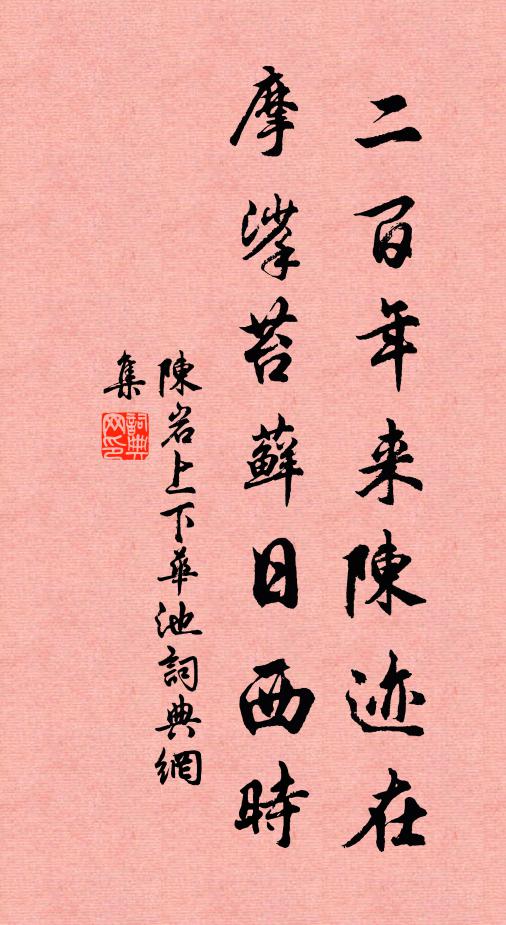 二百年来陳迹在
摩挲苔蘚日西時
陳岩上下華池詞典網
集
詞典网印